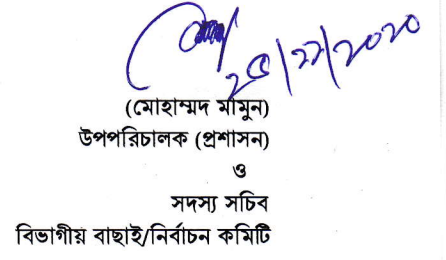 ২৫/১১/২০২০
(মোহাম্মদ মামুন)
উপপরিচালক (প্রশাসন)
ও
সদস্য সচিব
বিভাগীয় বাছাই/নির্বাচন কমিটি